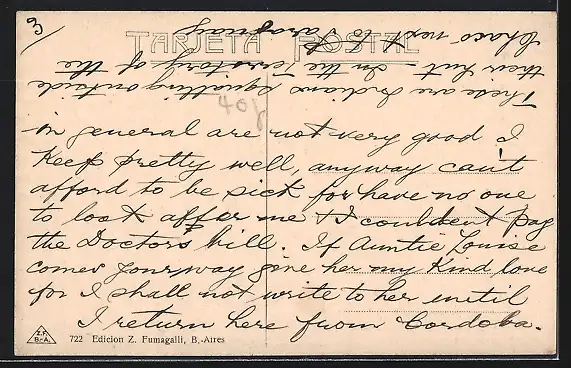 3/
TARJETA POSTAL
in general are not very good I
keep pretty well, anyway can't
afford to be sick for have no one
to look affer me & I couldent pay
the Doctors bill. If Auntie Louise
comes your way give her my kind love
for I shall not write to her until
I return here from Cordoba.
These are Indians squatting outside
their hut In the Territory of the
Chaco next to Paraguay
408
Z.F.
B.-A.
722 Edicion Z. Fumagalli, B.-Aires